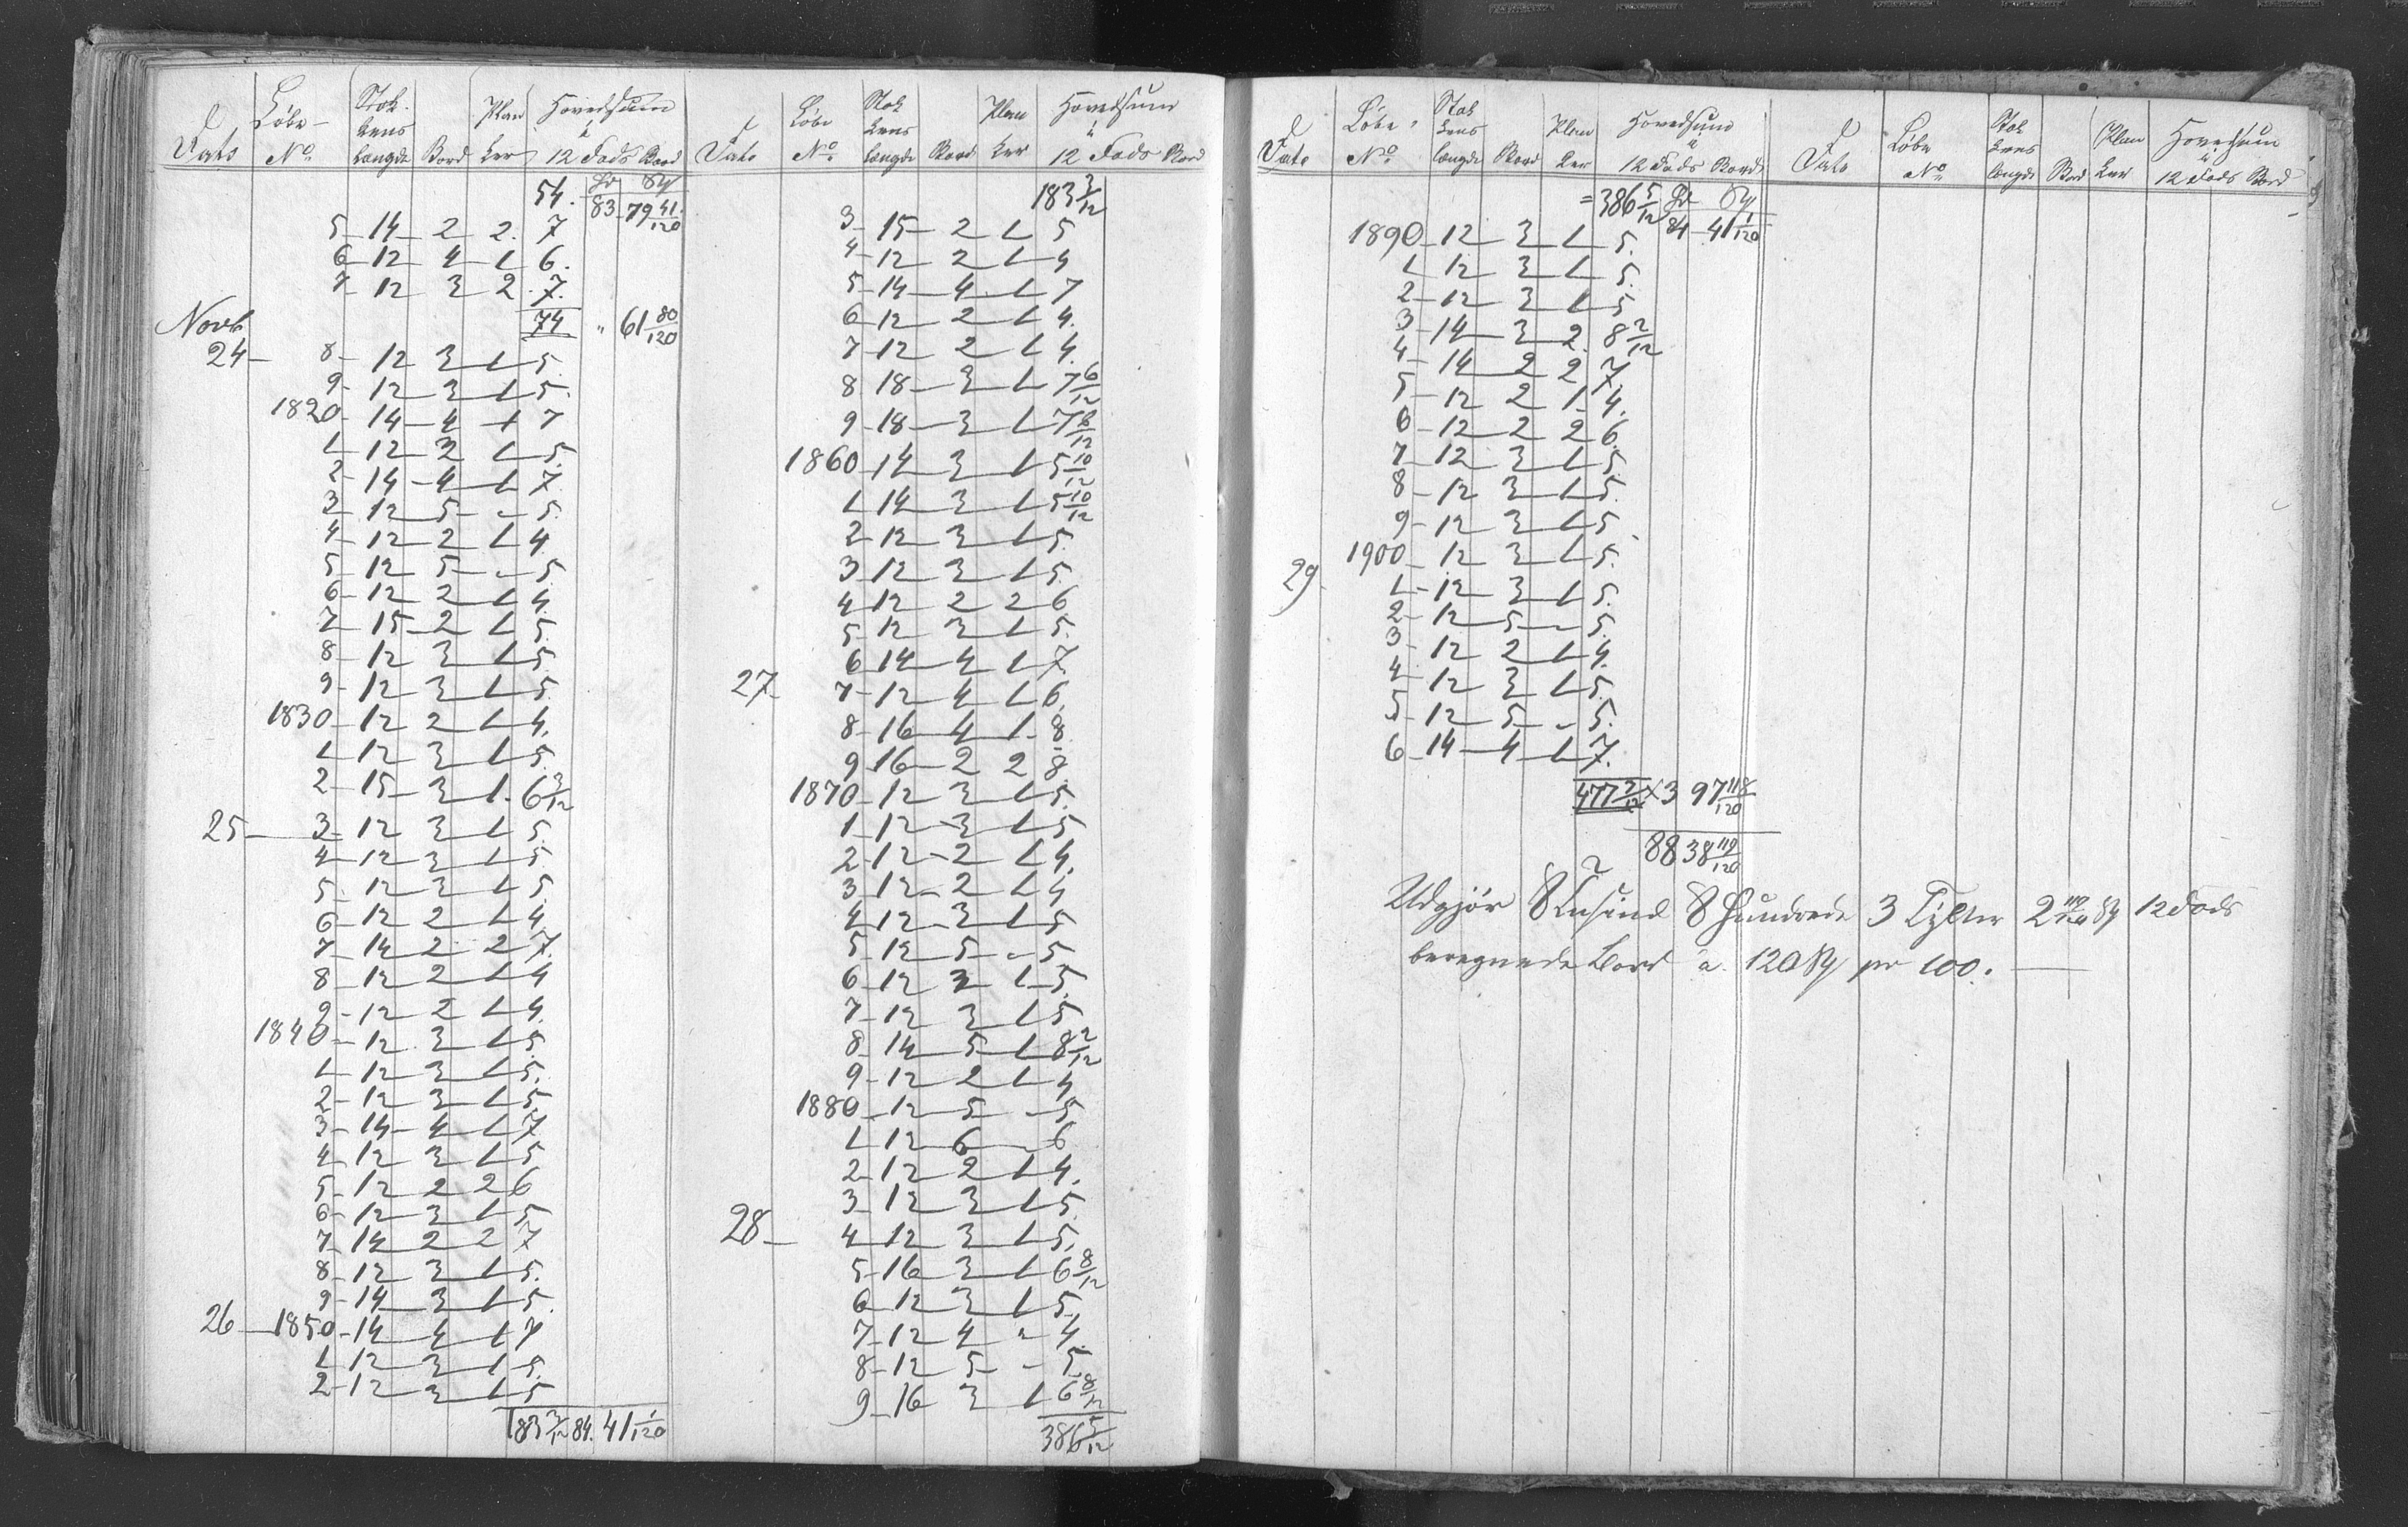 Dato Løbe- No Stok- kens Længde Bord Plan ker Hovedsum a 12 Fods Bord
54. Hd Sty
83-79 41/120
5-14-2 2. 7
6-12-4-1 6.
7-12 3 2 7.
Novb
74 " 61 80/120
24- 8-12 3-1-5.
9-12-3-1-5.
1820-14-4-1 7
1-12-3-1-5.
2-14-4-1 7
3-12-5-"-5.
4-12-2-1 4.
5-12-5-"-5.
6-12-2-1 4.
7-15-2-1 5.
8-12 3-1 5.
9-12-3-1 5.
1830-12-2-1 4.
1-12-3-1 5.
2-15-3-1-6 3/12
25- 3-12 3-1 5.
4-12-3-1 5.
5-12-3-1 5.
6-12 2-1 4.
7-14 2 2 7.
8-12 2-1 4
9-12-2-1 4.
1840-12 3-1 5.
1-12 3-1 5.
2-12 3-1 5
3-14-4-1 7
4-12 3-1 5
5-12 2 2 6
6-12 3-1 5
7-14 2 2 7
8-12 3-1 5.
9-14 3-1 5.
26-1850-14-4-1 7
1-12 3-1 5.
2-12 3-1 5
183 3/12 84. 41 1/120
Dato Løbe No Stok kens Længde Bord Plan ker Hovedsum a 12 Fods Bord
183 3/12
3-15-2-1 5
4-12-2-1 4
5-14-4-1 7
6-12-2-1 4.
7-12 2-1 4.
8 18-3-1-7 6/12
9-18-3-1 7 6/12
1860-14-3-1 5 10/12
1 14-3-1 5 10/12
2-12-3-1 5.
3-12-3-1 5.
4-12-2 2 6
5-12-3-1 5.
6-14-4-1 7.
27 7-12-4-1 6.
8-16-4-1-8.
9-16-2 2 8
1870-12-3-1 5.
1-12-3-1 5
2-12-2-1 4.
3-12-2-1 4
4-12-3-1 5
5-12-5-"-5
6-12 3-1 5.
7-12 3-1 5
8-14 5-1 8 2/12
9-12-2-1 4
1880-12-5-"-5
1-12 6-"-6
2-12-2-1 4.
3-12-3-1 5.
28- 4-12 3-1 5.
5-16-3-1 6 8/12
6-12-3-1 5.
7-12 4 " 4.
8-12 5-"-5.
9-16 3 1 6 8/12
386 5/12
Dato Løbe No Stok kens Længde Bord Plan ker Hovedsum a 12 Fods Bord
=386 5/12 Hd Sty
84-41 1/120
1890-12 3-1 5.
1 12-3-1 5.
2-12-3-1 5
3-14-3-2. 8 2/12
4-14-2 2 7
5-12 2 1 4.
6-12-2 2 6.
7-12 3-1 5.
8-12 3-1 5.
9-12 3-1 5.
1900-12 3-1 5.
29- 1-12-3-1 5.
2-12-5-"-5.
3-12 2-1 4.
4-12 3-1 5.
5-12-5-"-5.
6-14-4-1 7.
477 2/12 × 3 97 118/120
88 38 119/120
Udgjør 8 Tusind 8 Hundrede 3 Tylter 2 119/120 Sty 12 Fods
beregnede Bord a. 120 Sty pr 100.
Dato Løbe No Stok kens Længde Bord Plan ker Hovedsum a 12 Fods Bord